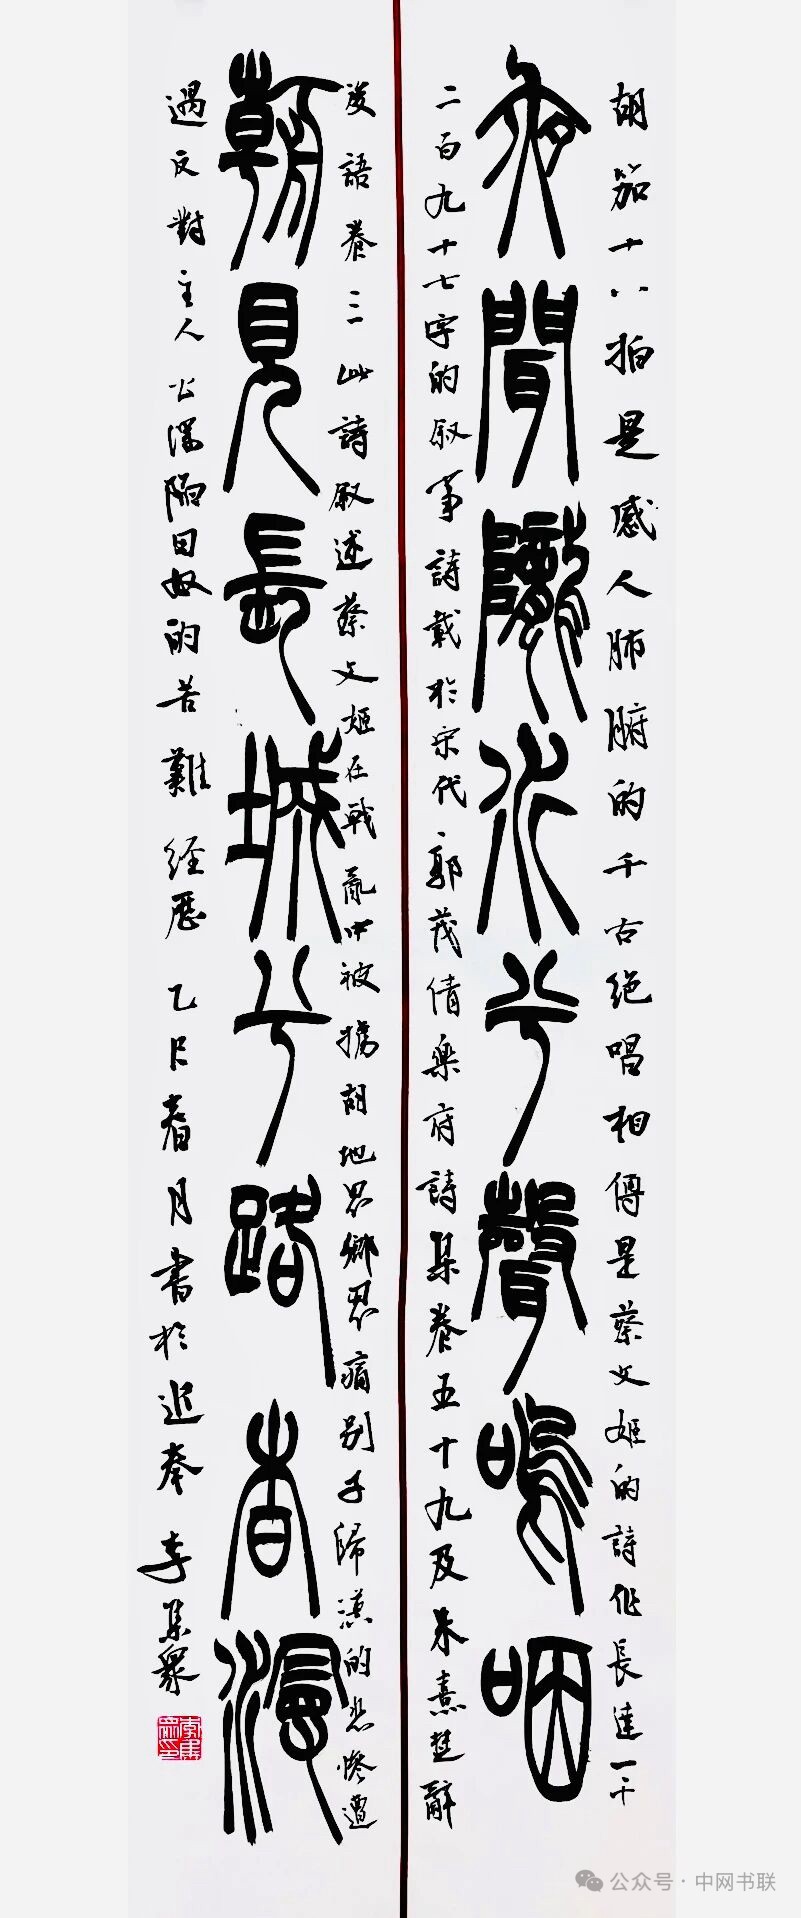 胡笳十八拍是感人肺腑的千古绝唱相傳是蔡文姬的詩作長達一千
夜聞隴水兮聲嗚咽
二百九十七字的叙事詩載於宋代郭茂倩樂府詩集卷五十九及朱熹楚辭
後語卷三此詩叙述蔡文姬在戰亂中被擄胡地思鄉思痛别子歸漢的悲惨遭
朝見長城兮路杳漫
遇反對主人公深陷匈奴的苦難經歷乙巳春月書於追秦李集众
公众号·中网书联